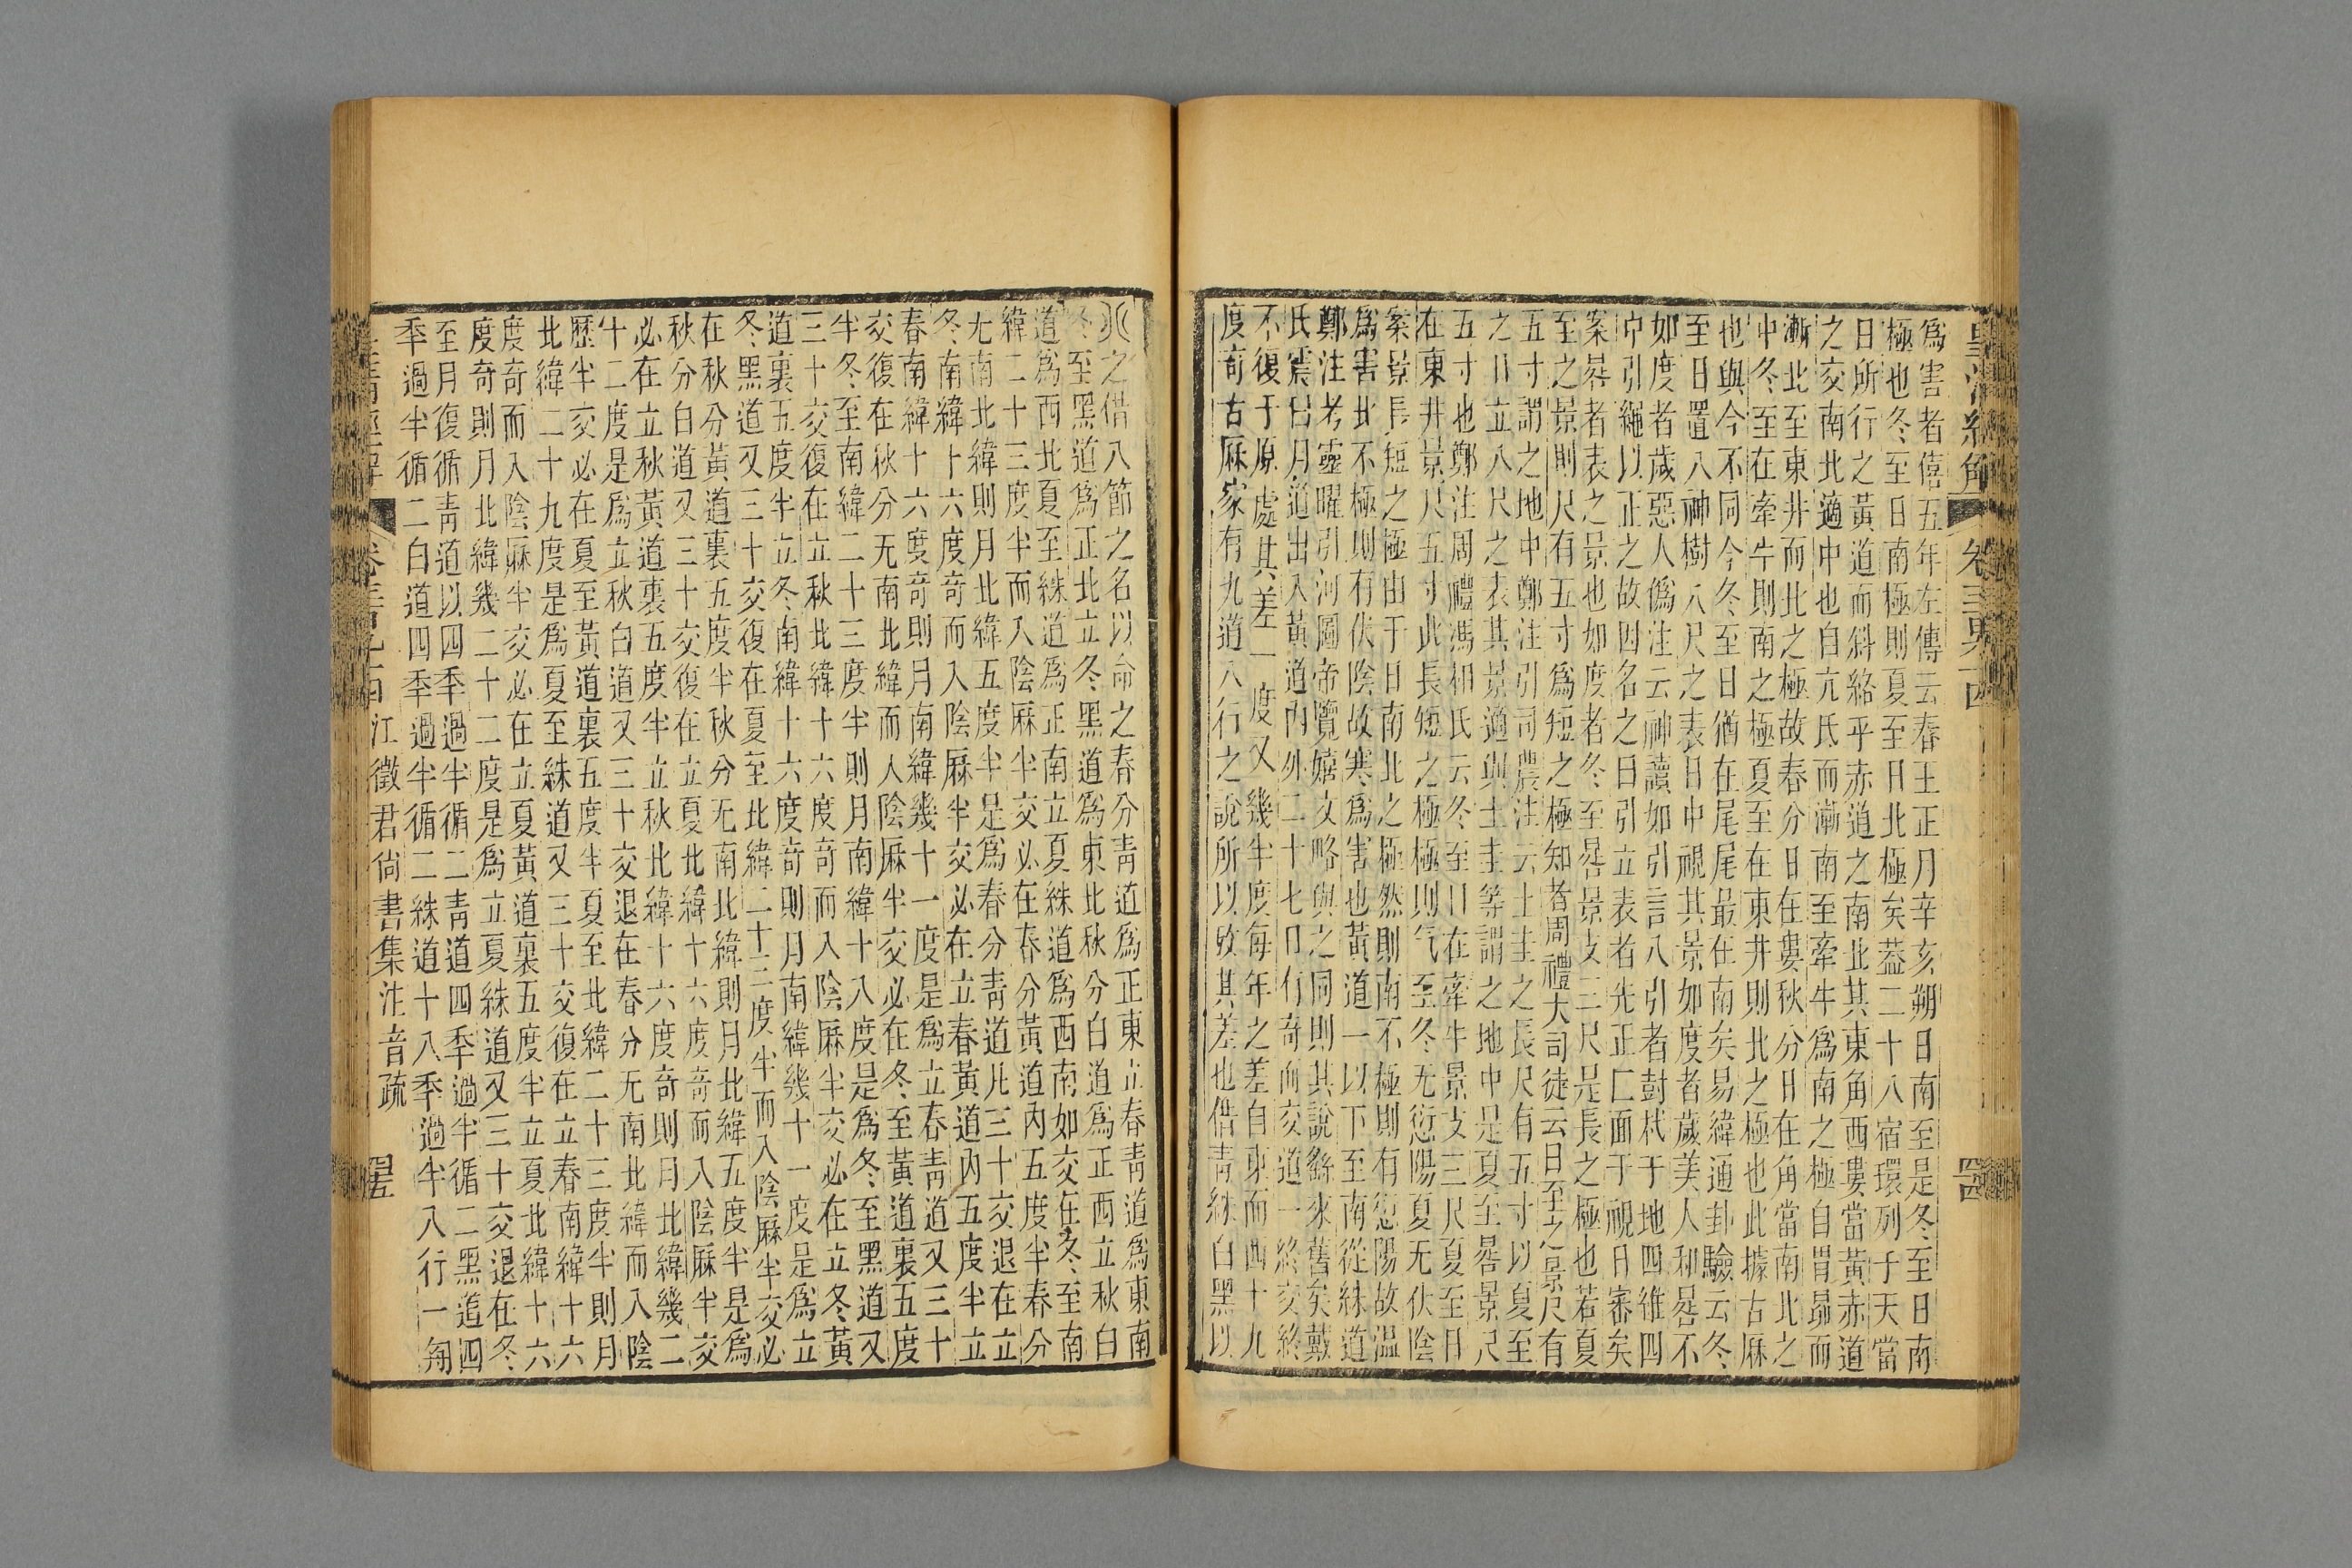 皇清經解
卷三百九十四
爲害者僖五年左傳云春王正月辛亥朔日南至是冬至日南
極也冬至日南極則夏至日北極矣葢二十八宿環列于天當
日所行之黃道而斜絡乎赤道之南北其東角西婁當黃赤道
之交南北適中也自亢氐而漸南至牽牛爲南之極自胃昴而
漸北至東井而北之極故春分日在婁秋分日在角當南北之
中冬至在牽牛則南之極夏至在東井則北之極也此據古厤
也與今不同今冬至日猶在尾尾最在南矣易緯通卦驗云冬
至日置八神樹八尺之表日中視其景如度者歲美人和晷不
如度者歲惡人僞注云神讀如引言八引者尌杙于地四維四
中引繩以正之故因名之曰引立表者先正匚面于視日審矣
案晷者表之景也如度者冬至晷景丈三尺是長之極也若夏
至之景則尺有五寸爲短之極知者周禮大司徒云日至之景尺有
五寸謂之地中鄭注引司農注云土圭之長尺有五寸以夏至
之日立八尺之表其景適與土圭等謂之地中是夏至晷景尺
五寸也鄭注周禮馮相氏云冬至日在牽牛景丈三尺夏至日
在東井景尺五寸此長短之極極則气至冬无愆陽夏无伏陰
案景長短之極由于日南北之極然則南不極則有愆陽故温
爲害北不極則有伏陰故寒爲害也黃道一以下至南從絑道
鄭注考靈曜引河圖帝覽嬉文略與之同則其說繇來舊矣戴
氏震曰月道出入黃道內外二十七日有奇而交道一終交終
不復于原處其差一度又幾半度每年之差自東而西十九
度奇古厤家有九道八行之說所以攷其差也借靑絑白黑以
八之借八節之名以命之春分靑道爲正東立春靑道爲東南
冬至黑道爲正北立冬黑道爲東北秋分白道爲正西立秋白
道爲西北夏至絑道爲正南立夏絑道爲西南如交在冬至南
緯二十三度半而入陰厤半交必在春分黃道內五度半春分
无南北緯則月北緯五度半是爲春分靑道凡三十交退在立
冬南緯十六度奇而入陰厤半交必在立春黃道內五度半立
春南緯十六度奇則月南緯幾十一度是爲立春靑道又三十
交復在秋分无南北緯而入陰厤半交必在冬至黃道裏五度
半冬至南緯二十三度半則月南緯十八度是爲冬至黑道又
三十交復在立秋北緯十六度奇而入陰厤半交必在立冬黃
道裏五度半立冬南緯十六度奇則月南緯幾十一度是爲立
冬黑道又三十交復在夏至北緯二十三度半而入陰厤半交必
在秋分黃道裏五度半秋分无南北緯則月北緯五度半是爲
秋分白道又三十交復在立夏北緯十六度奇而入陰厤半交
必在立秋黃道裏五度半立秋北緯十六度奇則月北緯幾二
十二度是爲立秋白道又三十交退在春分无南北緯而入陰
歷半交必在夏至黃道裏五度半夏至北緯二十三度半則月
北緯二十九度是爲夏至絑道又三十交復在立春南緯十六
度奇而入陰厤半交必在立夏黃道裏五度半立夏北緯十六
度奇則月北緯幾二十二度是爲立夏絑道又三十交退在冬
至月復循靑道以四季過半循二靑道四季過半循二黑道四
季過半循二白道四季過半循二絑道十八季過半八行一匊
江徵君尙書集注音疏